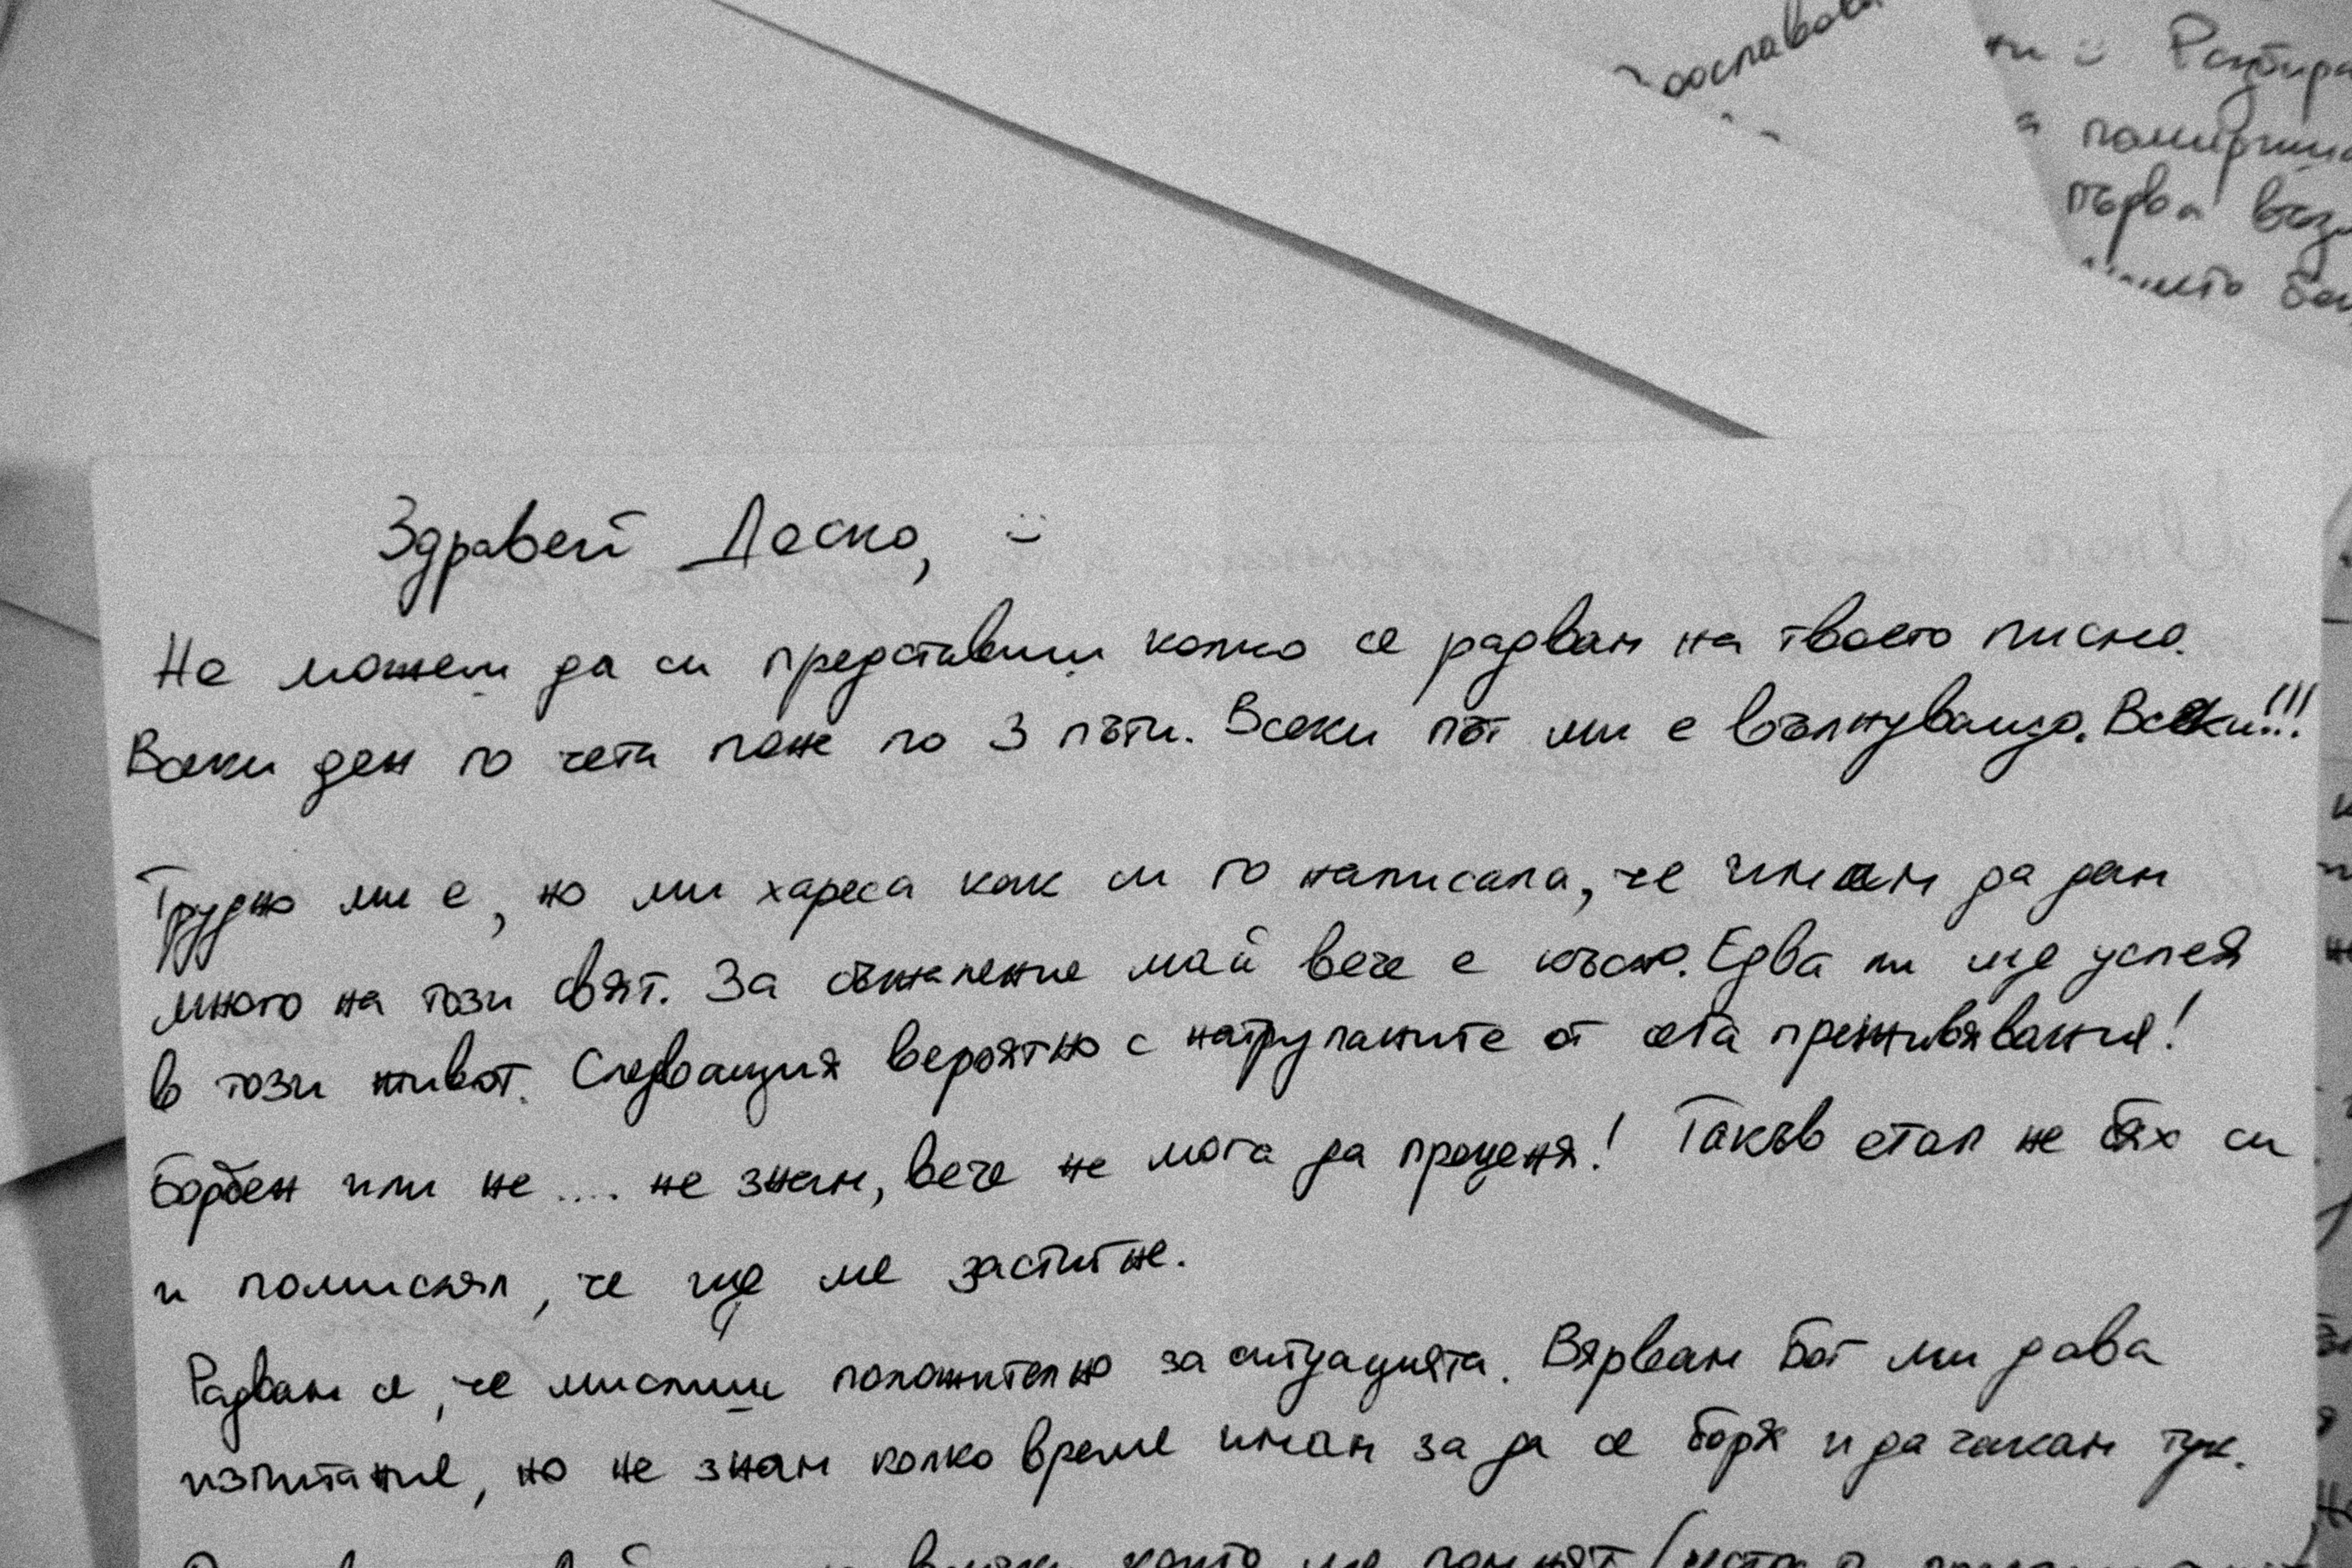 Здравей Деско, :)
Не можеш да си представиш колко се радвам на твоето писмо.
Всеки ден го чета поне по 3 пъти. Всеки път ми е вълнуващо. Всеки!!!
Трудно ми е, но ми хареса как си го написала, че имам да дам
много на този свят. За съжаление май вече е късно. Едва ли ще успея
в този живот. Следващия вероятно с натрупаните от сега преживявания!
Борбен или не .... не знам, вече не мога да преценя! Такъв етап не бях си
и помислял, че ще ме застигне.
Радвам се, че мислиш положително за ситуацията. Вярвам Бог ми дава
изпитание, но не знам колко време имам за да се боря и да чакам тук.
първа